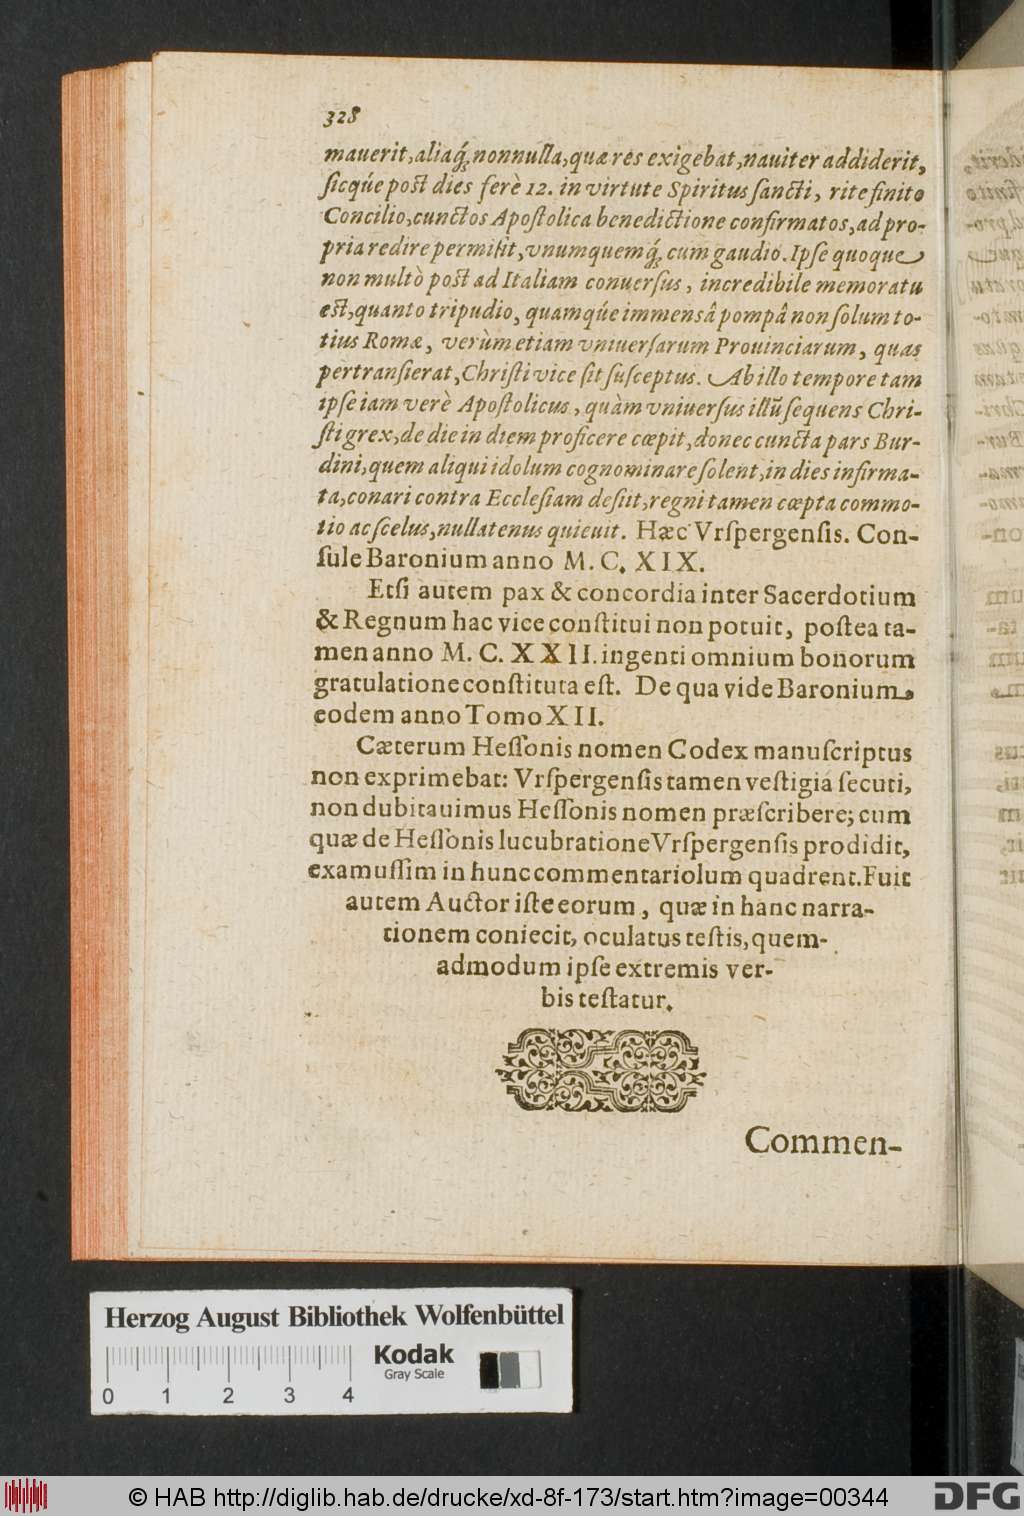 328
mauerit,aliaq́; nonnulla,quæ res exigebat,nauiter addiderit,
ſicq́ue poſt dies ferè 12. in virtute Spiritus ſancti, rite finito
Concilio,cunctos Apoſtolica benedictione confirmatos,ad pro-
pria redire permiſit,vnumquemq́; cum gaudio. Ipſe quoque
non multò poſt ad Italiam conuerſus, incredibile memoratu
eſt,quanto tripudio, quamq́ue immensâ pompâ non ſolum to-
tius Romæ, verùm etiam vniuerſarum Prouinciarum, quas
pertranſierat,Chriſti vice ſit ſuſceptus. Ab illo tempore tam
ipſe iam verè Apoſtolicus, quàm vniuerſus illū ſequens Chri-
ſti grex,de die in diem proficere cœpit,donec cuncta pars Bur-
dini,quem aliqui idolum cognominare ſolent,in dies infirma-
ta,conari contra Eccleſiam deſiit,regni tamen cœpta commo-
tio ac ſcelus,nullatenus quieuit. Hæc Vrſpergenſis. Con-
ſule Baronium anno M. C. XIX.
Etſi autem pax & concordia inter Sacerdotium
& Regnum hac vice conſtitui non potuit, poſtea ta-
men anno M. C. XXII. ingenti omnium bonorum
gratulatione conſtituta eſt. De qua vide Baronium,
eodem anno Tomo XII.
Cæterum Heſſonis nomen Codex manuſcriptus
non exprimebat: Vrſpergenſis tamen veſtigia ſecuti,
non dubitauimus Heſſonis nomen præſcribere; cum
quæ de Heſſonis lucubratione Vrſpergenſis prodidit,
examuſſim in hunc commentariolum quadrent. Fuit
autem Auctor iſte eorum, quæ in hanc narra-
tionem coniecit, oculatus teſtis, quem-
admodum ipſe extremis ver-
bis teſtatur.
Commen-
Herzog August Bibliothek Wolfenbüttel
Kodak
Gray Scale
0 1 2 3 4
© HAB http://diglib.hab.de/drucke/xd-8f-173/start.htm?image=00344
DFG